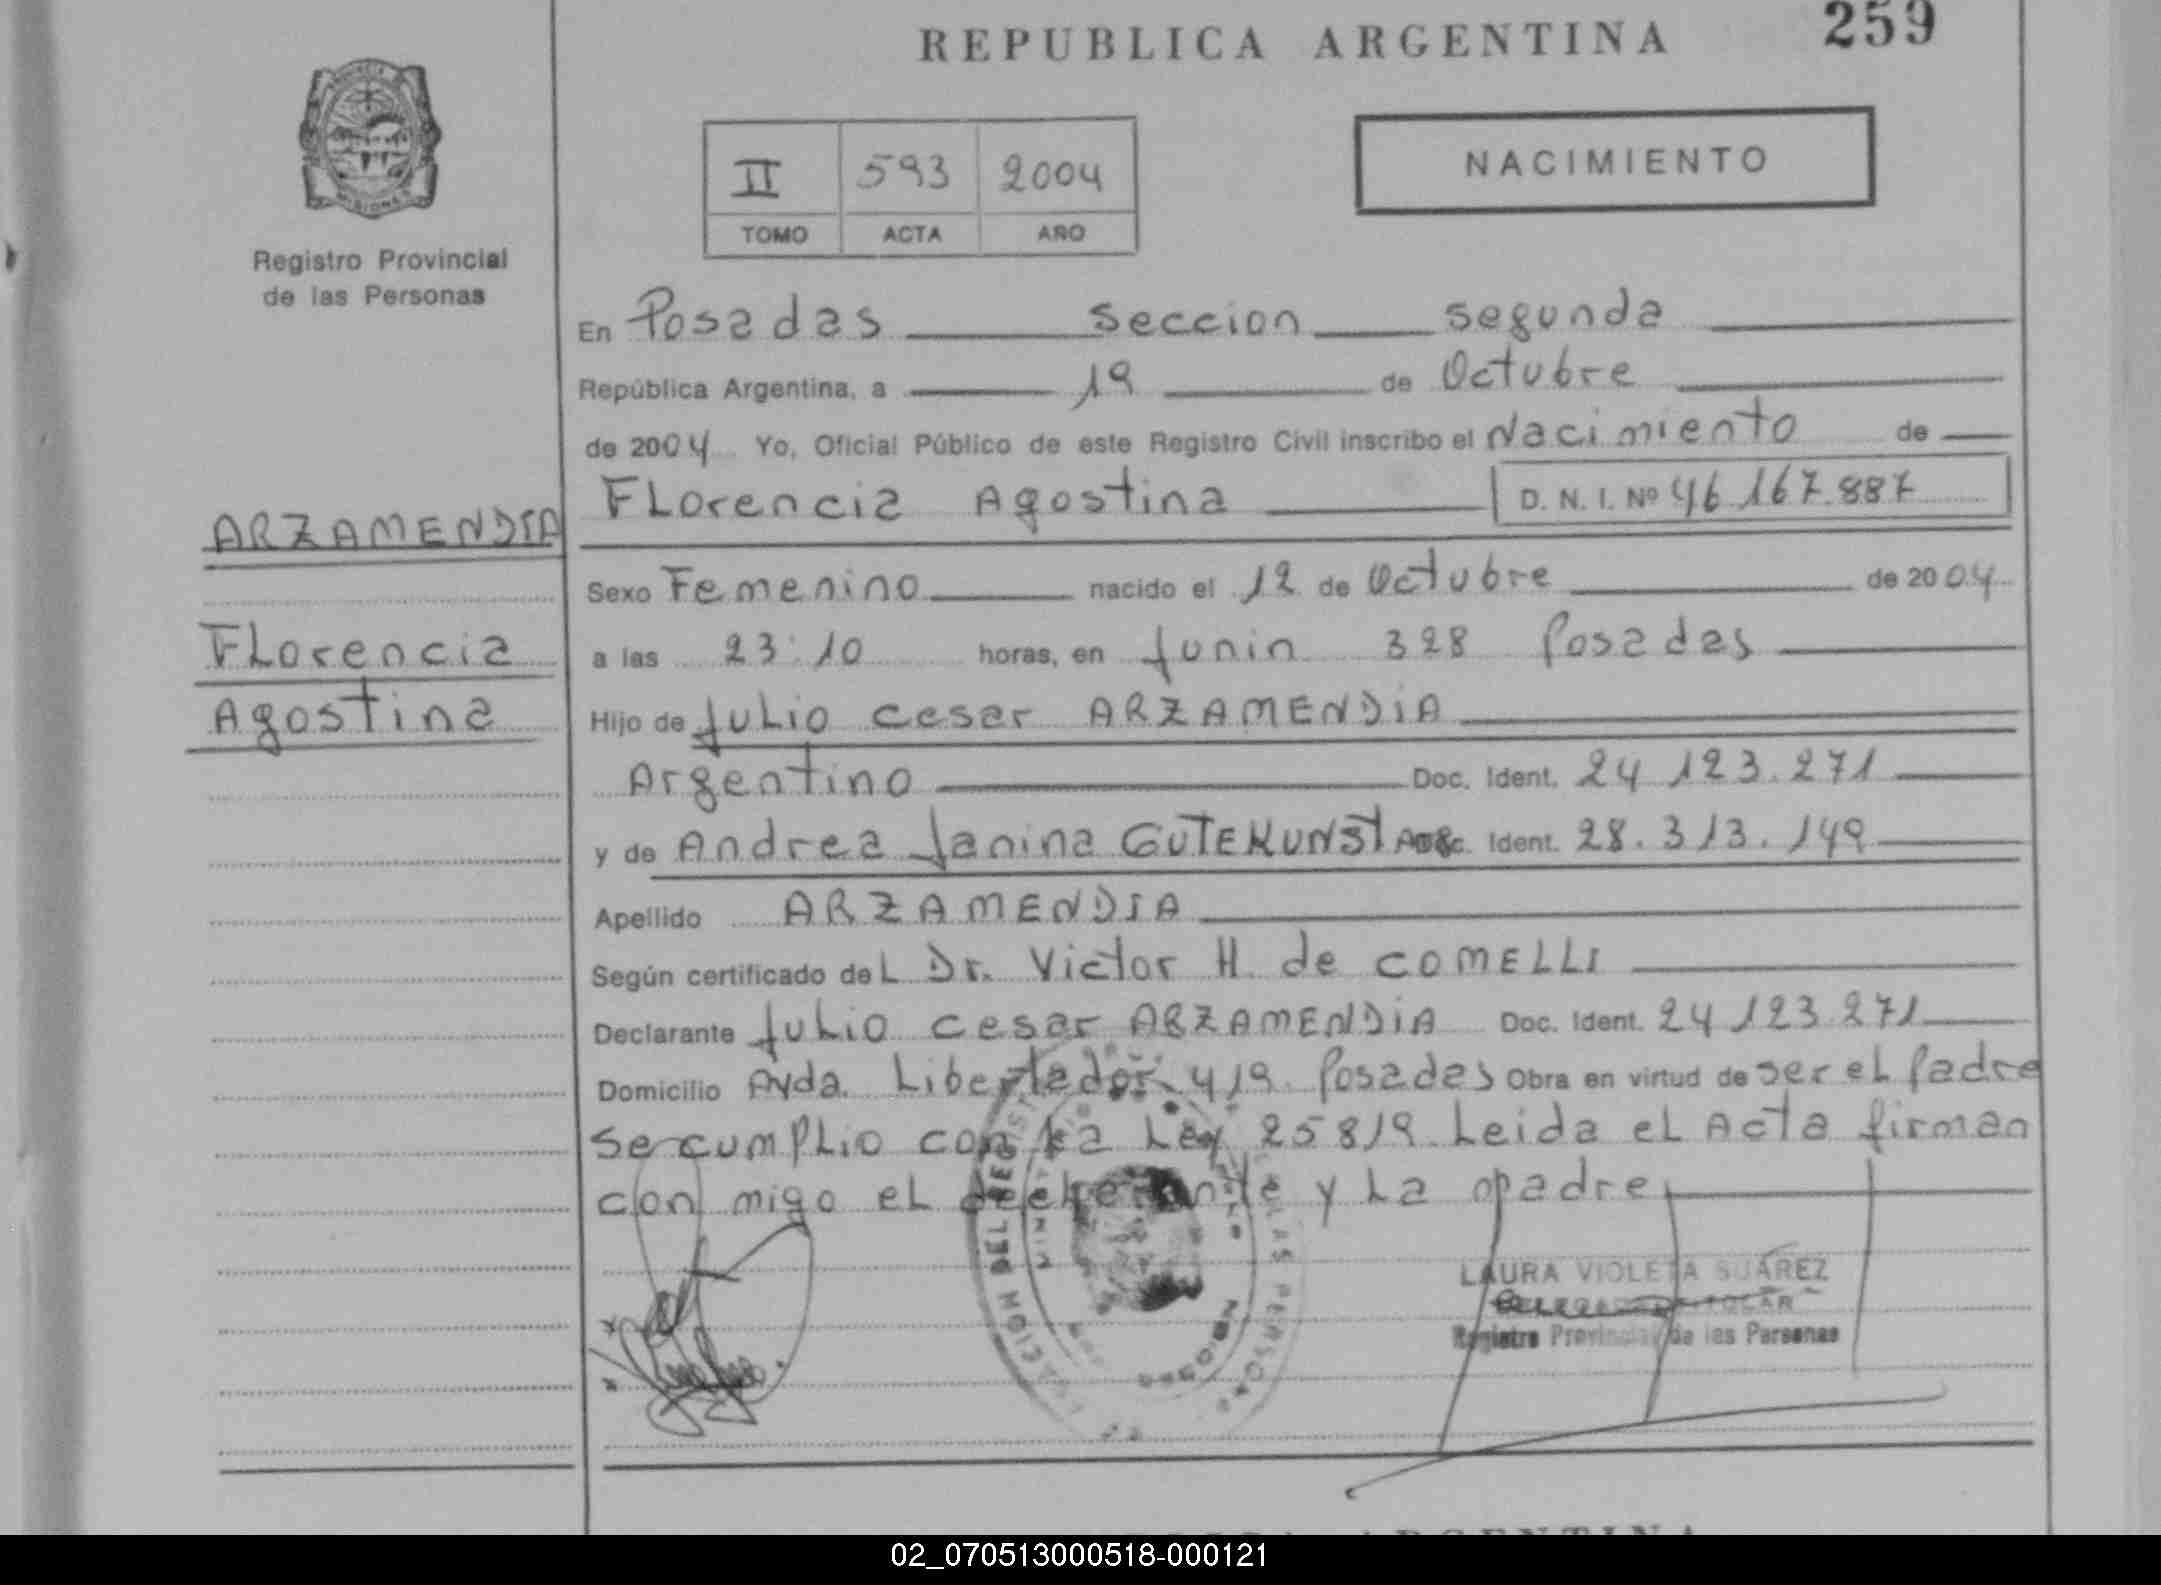 REPUBLICA ARGENTINA 259
II 593 2004
TOMO ACTA AÑO
NACIMIENTO
MISIONES
Registro Provincial
de las Personas
ARZAMENDIA
Florencia
Agostina
En Posadas seccion segunda
República Argentina, a 19 de Octubre
de 2004 Yo, Oficial Público de este Registro Civil inscribo el Nacimiento de
Florencia Agostina D. N. I. Nº 46.167.887
Sexo Femenino nacido el 12 de Octubre de 2004
a las 23:10 horas, en Junin 328 Posadas
Hijo de Julio Cesar ARZAMENDIA
Argentino Doc. Ident. 24.123.271
y de Andrea Janina GUTEKUNST Doc. Ident. 28.313.149
Apellido ARZAMENDIA
Según certificado del Dr. Victor H. de COMELLI
Declarante Julio Cesar ARZAMENDIA Doc. Ident. 24.123.271
Domicilio Avda. Libertador 419. Posadas Obra en virtud de ser el Padre
Se cumplio con la Ley 25819. Leida el Acta firman
con migo el declarante y la madre
LAURA VIOLETA SUAREZ
Registro Provincial de las Personas
02_070513000518-000121